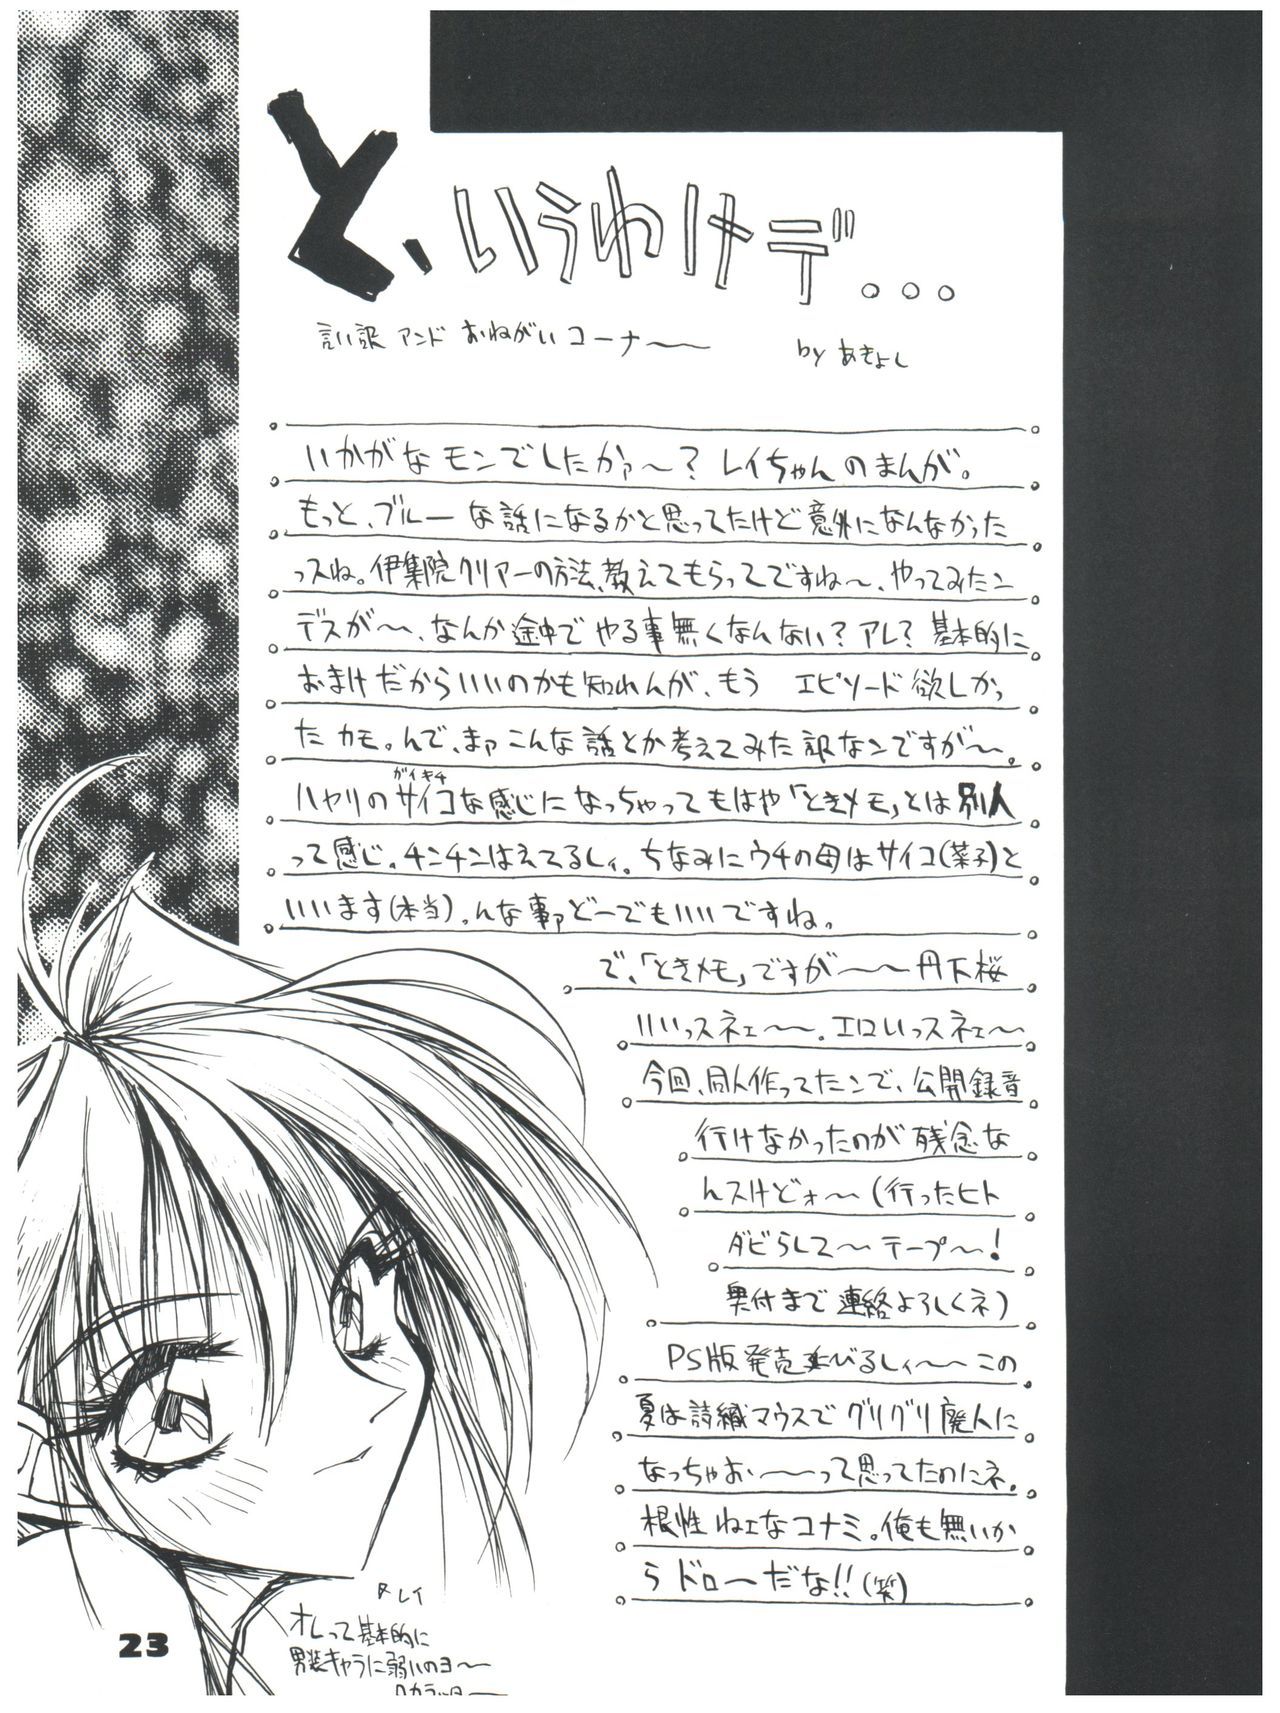 と、いうわけデ...
言い訳 アンド おねがい コーナ〜〜
by あきよし
いかがなモンでしたかァ〜？ レイちゃんのまんが。
もっと、ブルーな話になるかと思ってたけど意外になんなかった
っスね。伊集院クリアーの方法、教えてもらってですね〜、やってみたン
デスが〜、なんか途中でやる事無くなんない？アレ？基本的に
おまけだからいいのかも知れんが、もう エピソード欲しかっ
たカモ。んで、まァこんな話とか考えてみた訳なンですが〜。
ガイキチ
ハヤリのサイコな感じになっちゃってもはや「ときメモ」とは別人
って感じ。チンチンはえてるしィ。ちなみにウチの母はサイコ(菜子)と
いいます(本当)。んな事ァどーでもいいですね。
で、「ときメモ」ですが〜〜丹下桜
いいっスネェ〜〜。エロいっスネェ〜
今回、同人作ってたンで、公開録音
行けなかったのが残念な
んスけどォ〜（行ったヒト
ダビらして〜テープ〜！
奥付まで連絡よろしくネ）
PS版発売延びるしィ〜〜この
夏は詩織マウスでグリグリ廃人に
なっちゃおぃ〜〜って思ってたのにネ。
根性ねェなコナミ。俺も無いか
らドロ〜だな!!(笑)
レイ
オレって基本的に
男装キャラに弱いのヨ〜
23